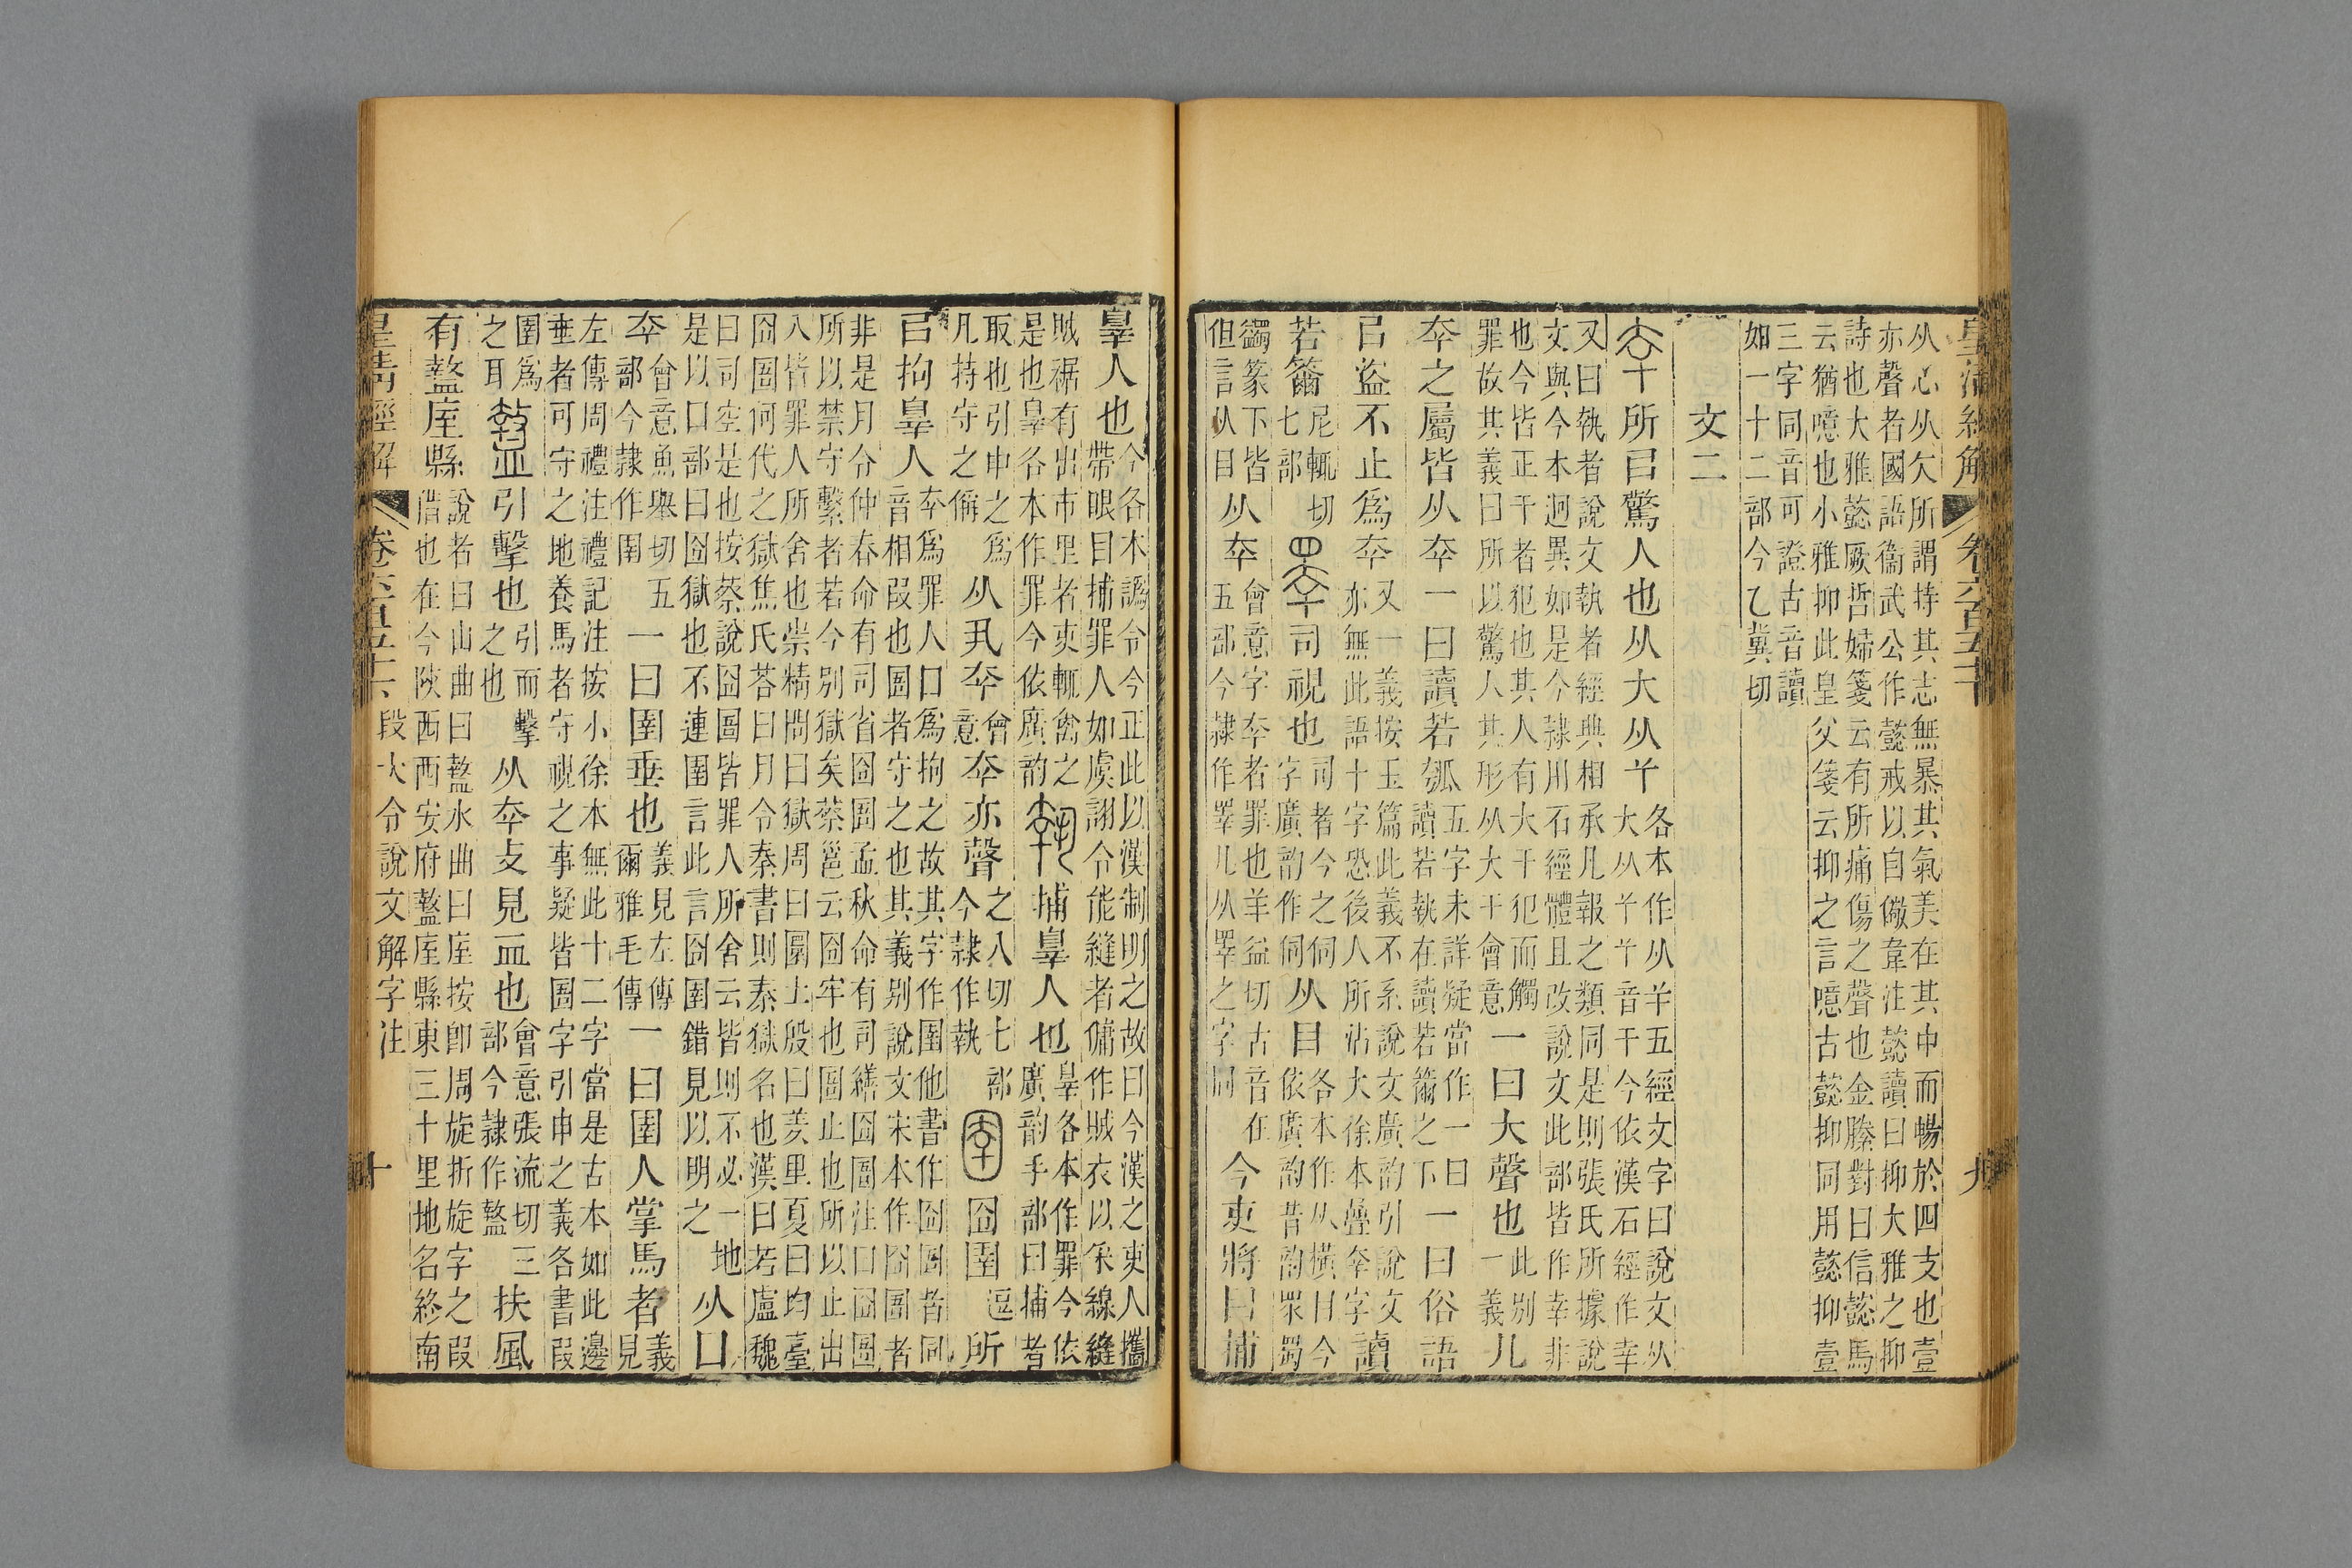 皇清經解 卷六百五十 九
从心从欠所謂持其志無暴其氣美在其中而暢於四支也壹
亦聲者國語衞武公作懿戒以自儆韋注懿讀曰抑大雅之抑
詩也大雅懿厥哲婦箋云有所痛傷之聲也金縢對曰信懿馬
云猶噫也小雅抑此皇父箋云抑之言噫古懿抑同用懿抑壹
三字同音可證古音讀
如一十二部今乙冀切
文二
㚔所㠯驚人也从大从𢆉各本作从羊五經文字曰說文从
大从𢆉𢆉音干今依漢石經作幸
又曰執者說文執者經典相承凡報之類同是則張氏所據說
文與今本迥異如是今隸用石經體且改說文此部皆作幸非
也今皆正干者犯也其人有大干犯而觸
罪故其義曰所以驚人其形从大干會意一曰大聲也此別
一義凡
㚔之屬皆从㚔一曰讀若瓠五字未詳疑當作一曰
讀若執在讀若籋之下一曰俗語
㠯盜不止爲㚔又一義按玉篇此義不系說文廣韵引說文
亦無此語十字恐後人所沾大徐本㬪㚔字讀
若籋尼輒切
七部睪司視也司者今之伺
字廣韵作伺从目各本作从橫目今
依廣韵昔韵眾蜀
蠲篆下皆
但言从目从㚔會意字㚔者罪也羊益切古音在
五部今隸作睪凡从睪之字同今吏將目捕
辠人也今各本譌令今正此以漢制明之故曰今漢之吏人攜
帶眼目捕罪人如虞詡令能縫者傭作賊衣以采線縫
賊裾有出市里者吏輒禽之
是也辠各本作罪今依廣韵執捕辠人也辠各本作罪今依
廣韵手部曰捕者
取也引申之爲
凡持守之偁从丮㚔會
意㚔亦聲之入切七部
今隸作執圉囹圉逗所
㠯拘辠人㚔爲罪人口爲拘之故其字作圉他書作囹圄者同
音相叚也圄者守之也其義別說文宋本作囹圄者
非是月令仲春命有司省囹圄孟秋命有司繕囹圄注曰囹圄
所以禁守繫者若今別獄矣蔡邕云囹牢也圄止也所以止出
入皆罪人所舍也崇精問曰獄周曰圜土殷曰羑里夏曰均臺
囹圄何代之獄焦氏荅曰月令秦書則秦獄名也漢曰若盧魏
曰司空是也按蔡說囹圄皆罪人所舍云皆則不必一地
是以口部曰囹獄也不連圉言此言囹圉錯見以明之从囗
㚔會意魚舉切五
部今隸作圉一曰圉垂也義見左傳
爾雅毛傳一曰圉人掌馬者義
見
左傳周禮注禮記注按小徐本無此十二字當是古本如此邊
垂者可守之地養馬者守視之事疑皆圄字引申之義各書叚
圉爲
之耳盩引擊也引而擊
之也从㚔攴見血也會意張流切三
部今隸作盩扶風
有盩厔縣說者曰山曲曰盩水曲曰厔按卽周旋折旋字之叚
借也在今陝西西安府盩厔縣東三十里地名終南
皇清經解 卷六百五十六 段大令說文解字注 十